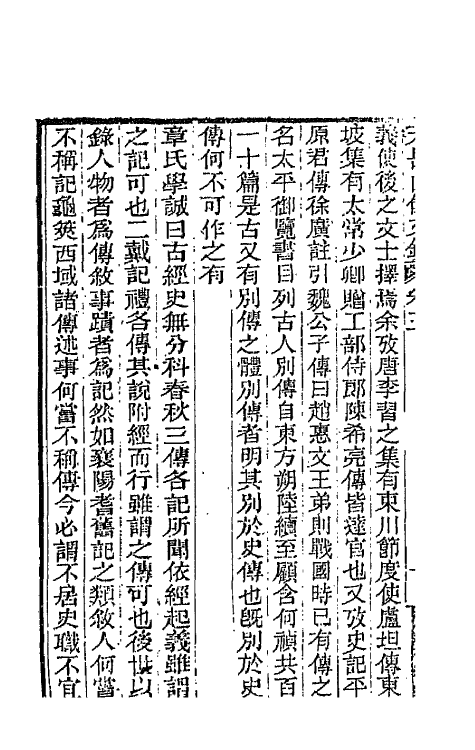 天岳山館文鈔 卷十二
義使後之文士擇焉余攷唐李習之集有東川節度使盧坦傳東
坡集有太常少卿贈工部侍郎陳希亮傳皆達官也又攷史記平
原君傳徐廣註引魏公子傳曰趙惠文王弟則戰國時已有傳之
名太平御覽書目列古人別傳自東方朔陸績至顧含何禎共百
一十篇是古又有別傳之體別傳者明其別於史傳也旣別於史
傳何不可作之有
章氏學誠曰古經史無分科春秋三傳各記所聞依經起義雖謂
之記可也二戴記禮各傳其說附經而行雖謂之傳可也後世以
錄人物者爲傳敘事蹟者爲記然如襄陽耆舊記之類敘人何嘗
不稱記龜筴西域諸傳述事何嘗不稱傳今必謂不居史職不宜